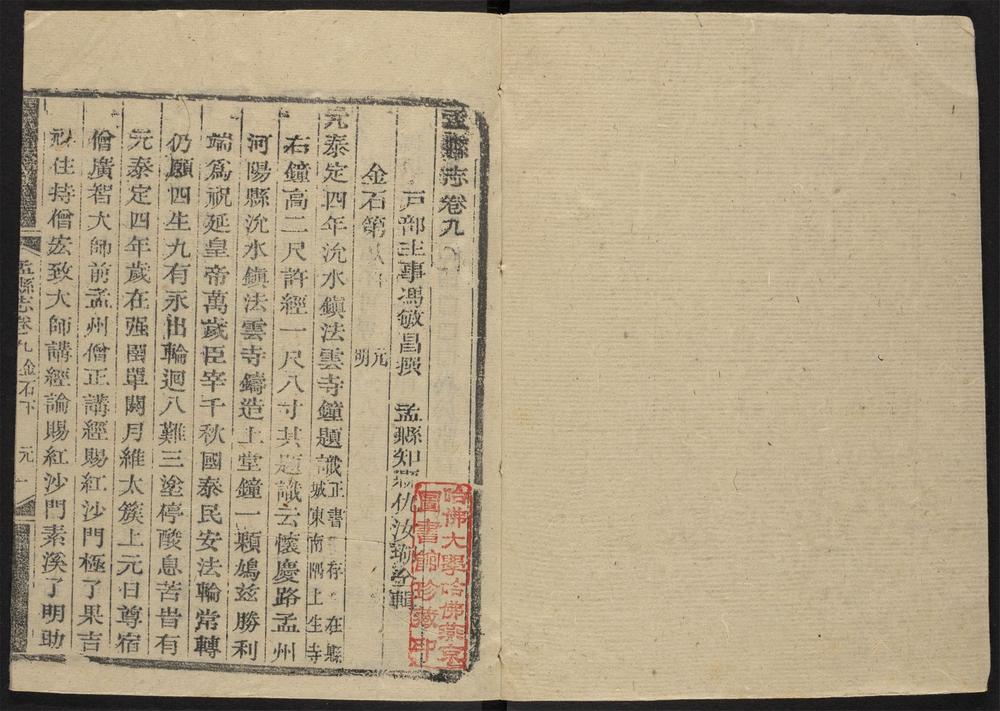 孟縣志卷九
戶部主事馮敏昌撰　孟縣知縣仇汝瑚全輯
金石第
元
明
元泰定四年沇水鎮法雲寺鐘題識正書存在縣
城東南隅上生寺
右鐘高二尺許經一尺八寸其題識云懷慶路孟州
河陽縣沇水鎮法雲寺鑄造上堂鐘一顆鳩兹勝利
端爲祝延皇帝萬歲臣宰千秋國泰民安法輪常轉
仍願四生九有永出輪迴八難三塗停酸息苦旹有
元泰定四年歲在强圉單閼月維太簇上元日尊宿
僧廣智大師前孟州僧正講經賜紅沙門極了果吉
祥住持僧宏致大師講經論賜紅沙門素溪了明助
孟縣志卷九金石下　元　一
哈佛大學哈佛燕京
圖書館珍藏印